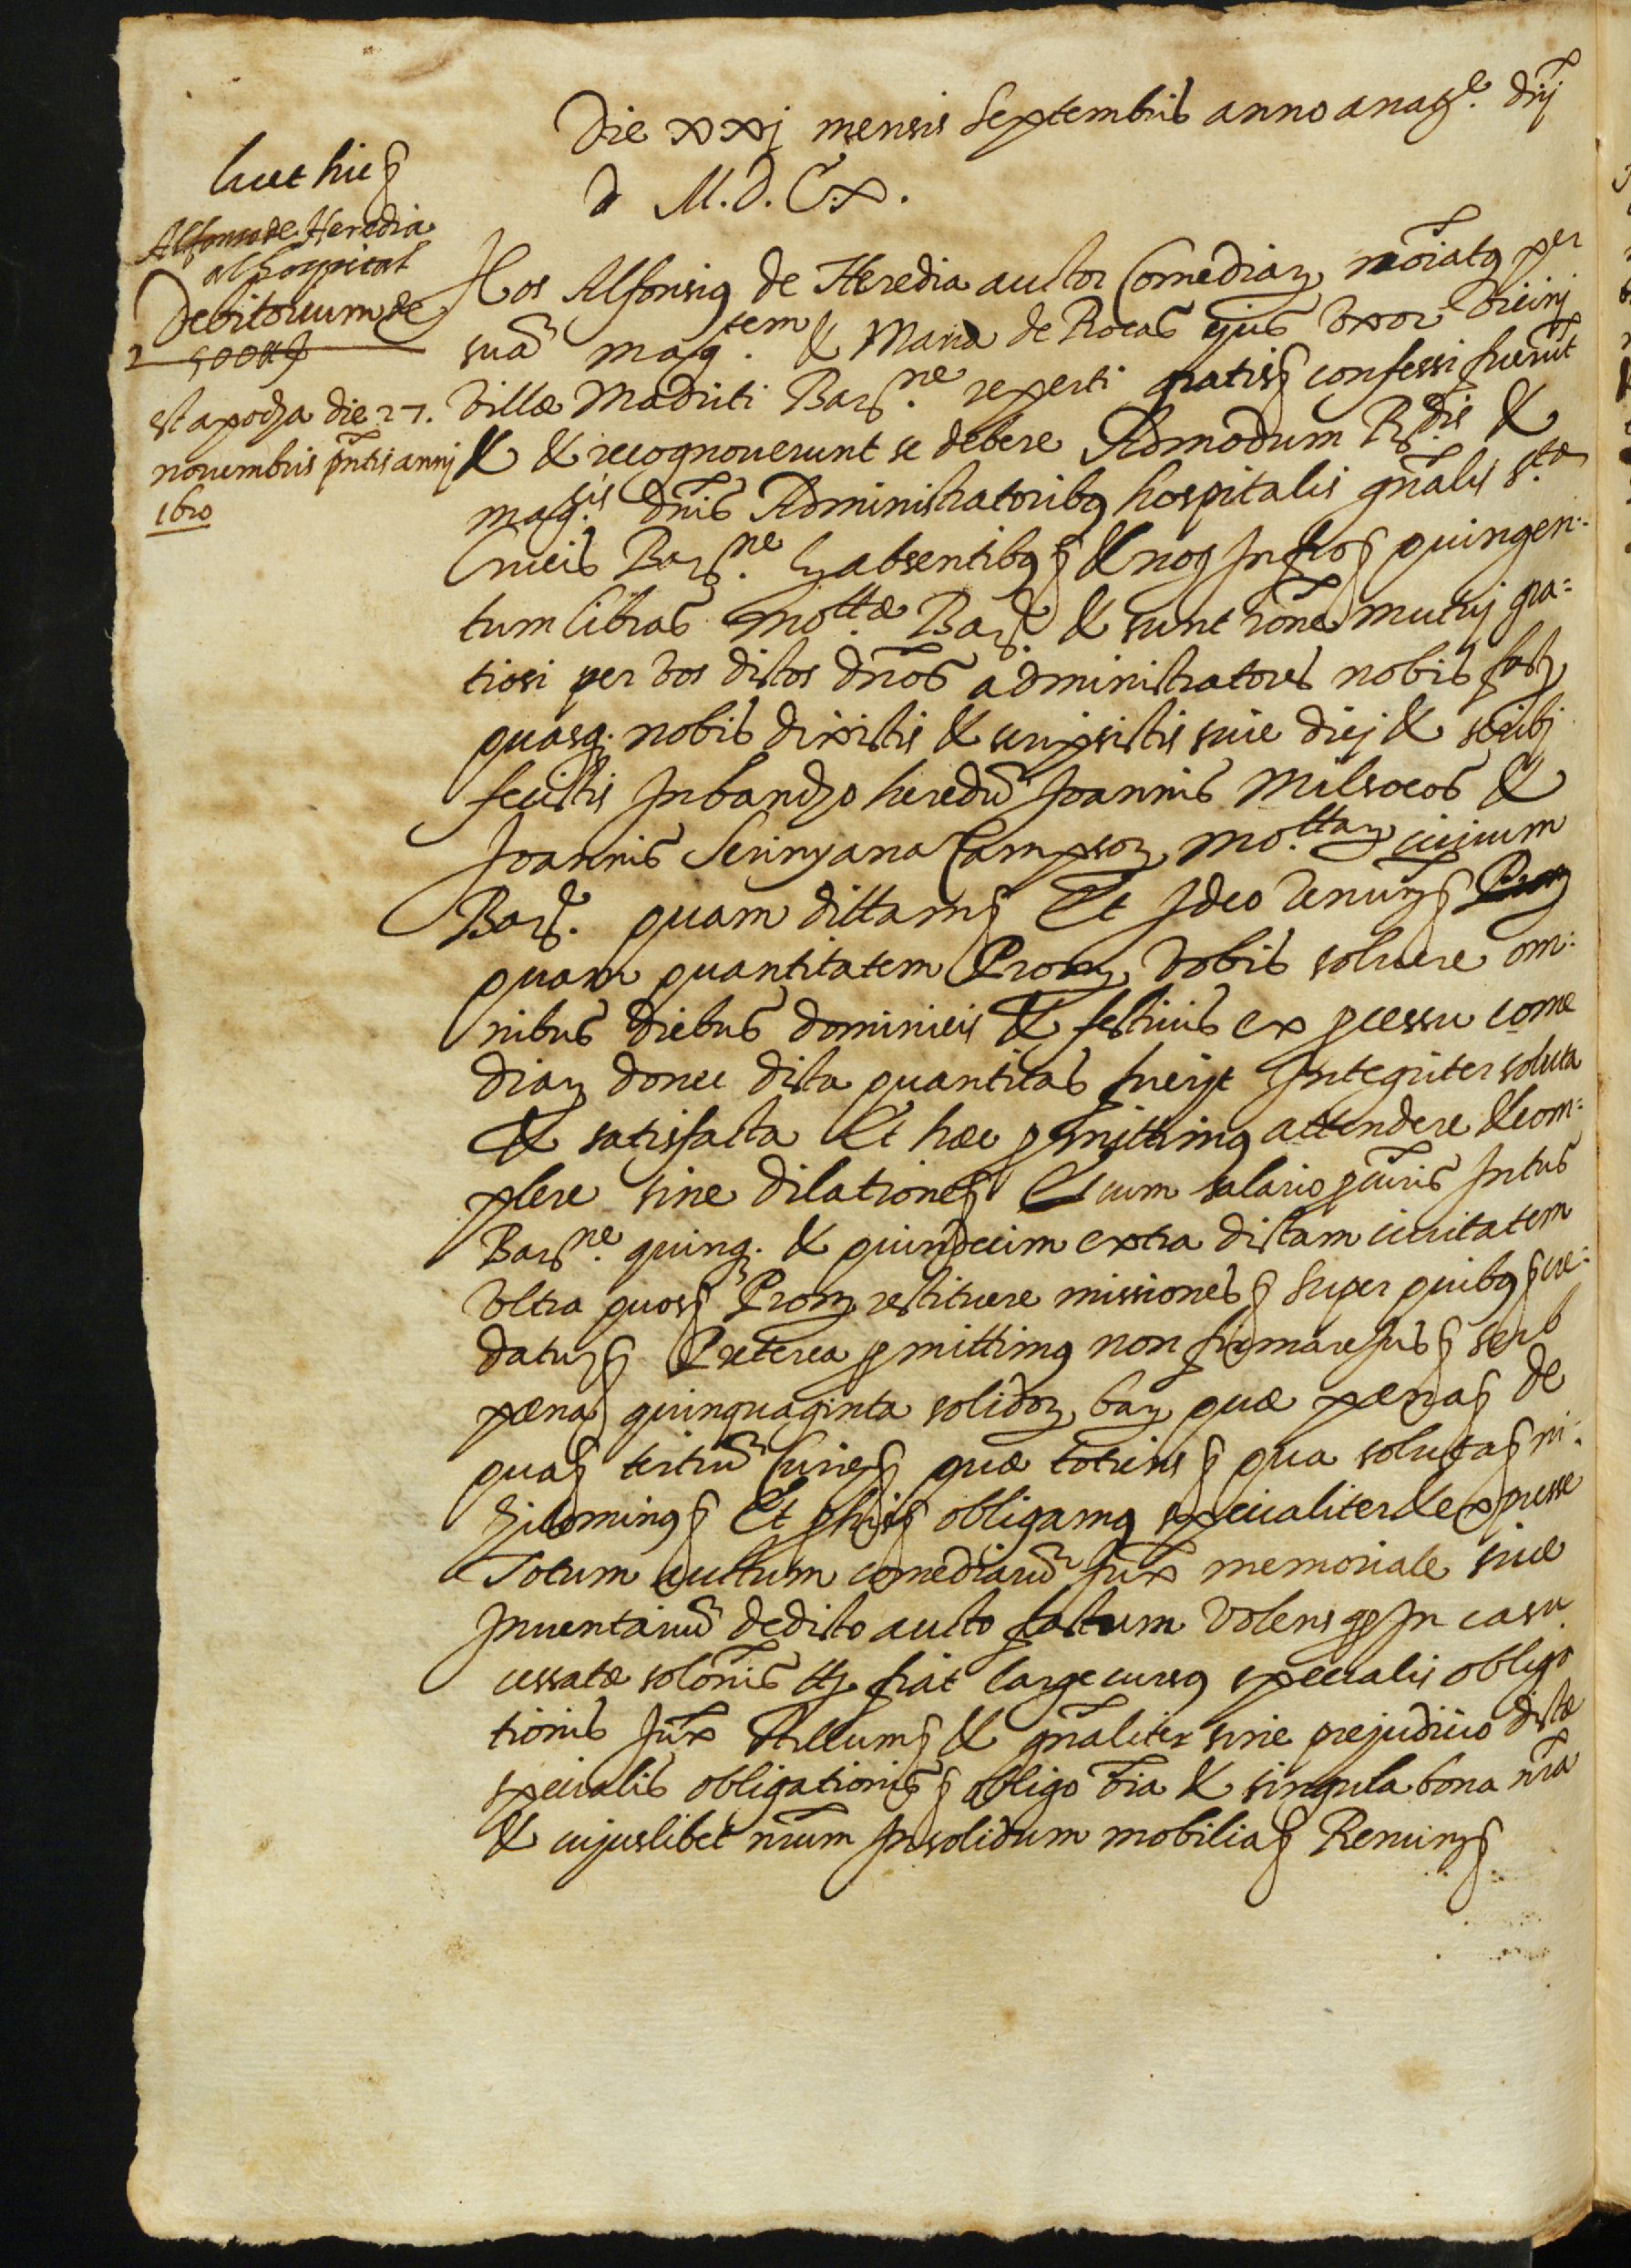 Die xxj mensis septembris anno a nat.e dnj
d M.D.C.x.
Alfonso de Heredia
al hospital
Debitorium de
500 ll
est apocha die 27.
novembris pntis annj
1610
Nos Alfonsus de Heredia auctor Comediar, noiatus per
suã mag.tem & Maria de Rocas ejus uxor vicinj
Villæ Madriti Bar.ne reperti gratis confessi fuerũt
& & recognoverunt se debere Admodum R.dis &
mag.cis dnis Administratoribus hospitalis gñalis s.tæ
Crucis Bar.ne absentibus & noto infro quingen:
tum libras mo.tæ Bar.e & sunt rone mutuj gra=
tiosi per vos dictos dños administratores nobis fact
quasq. nobis dixistis & scripsistis sive dicj & scribj
fecistis In bancho heredũ Joannis Milsocos &
Joannis Serinyana Campsor, mo.ttar civium
Bar.e quam dittam Et Ideo Renun
quam quantitatem Prom, vobis solvere om:
nibus diebus dominicis & festivis ex pcessu come
diar donec dicta quantitas fuerit Integriter soluta
& satisfacta Et hæc pmittimus attendere & com:
plere sine dilatione cum salario pcuris Intus
Bar.ne quinq. & quindecim extra dictam civitatem
Ultra quos Prom restituere missiones super quibus cre:
datur Preterea pmittimus non firmare jus sub
pæna quinquaginta solidor, bar, quæ pæna de
qua tertiũ curie quæ totiens qua soluta ni:
hilominus Et phis obligamus specialiter & expresse
Totum auctum comediarũ Jux memoriale sive
Inventariũ de dicto aucto factum Volens qp In casu
cessatæ solonis fiat large cursus specialis obliga
tionis Jux stillum & gñaliter sine prejudicio dictæ
specialis obligationis obligo oia & singula bona nra
& cujuslibet nrum Insolidum mobilia Renun